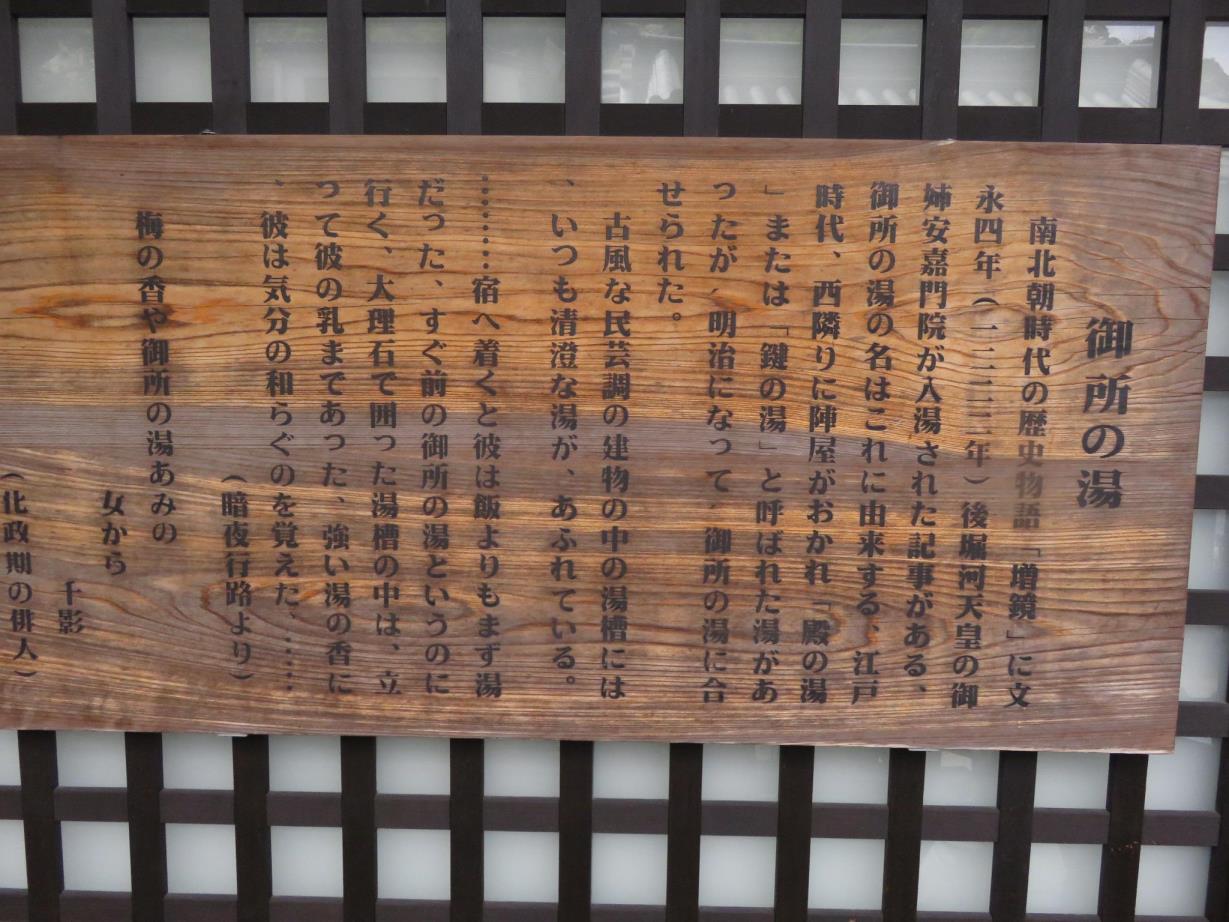 御所の湯
南北朝時代の歴史物語「増鏡」に文
永四年（一二二三年）後堀河天皇の御
姉安嘉門院が入湯された記事がある、
御所の湯の名はこれに由来する、江戸
時代、西隣りに陣屋がおかれ「殿の湯
」または「鍵の湯」と呼ばれた湯があ
ったが、明治になって、御所の湯に合
せられた。
古風な民芸調の建物の中の湯槽には
、いつも清澄な湯が、あふれている。
………宿へ着くと彼は飯よりもまず湯
だった、すぐ前の御所の湯というのに
行く、大理石で囲った湯槽の中は、立
って彼の乳まであった、強い湯の香に
、彼は気分の和らぐのを覚えた、……
（暗夜行路より）
梅の香や御所の湯あみの
女から
千影
（化政期の俳人）